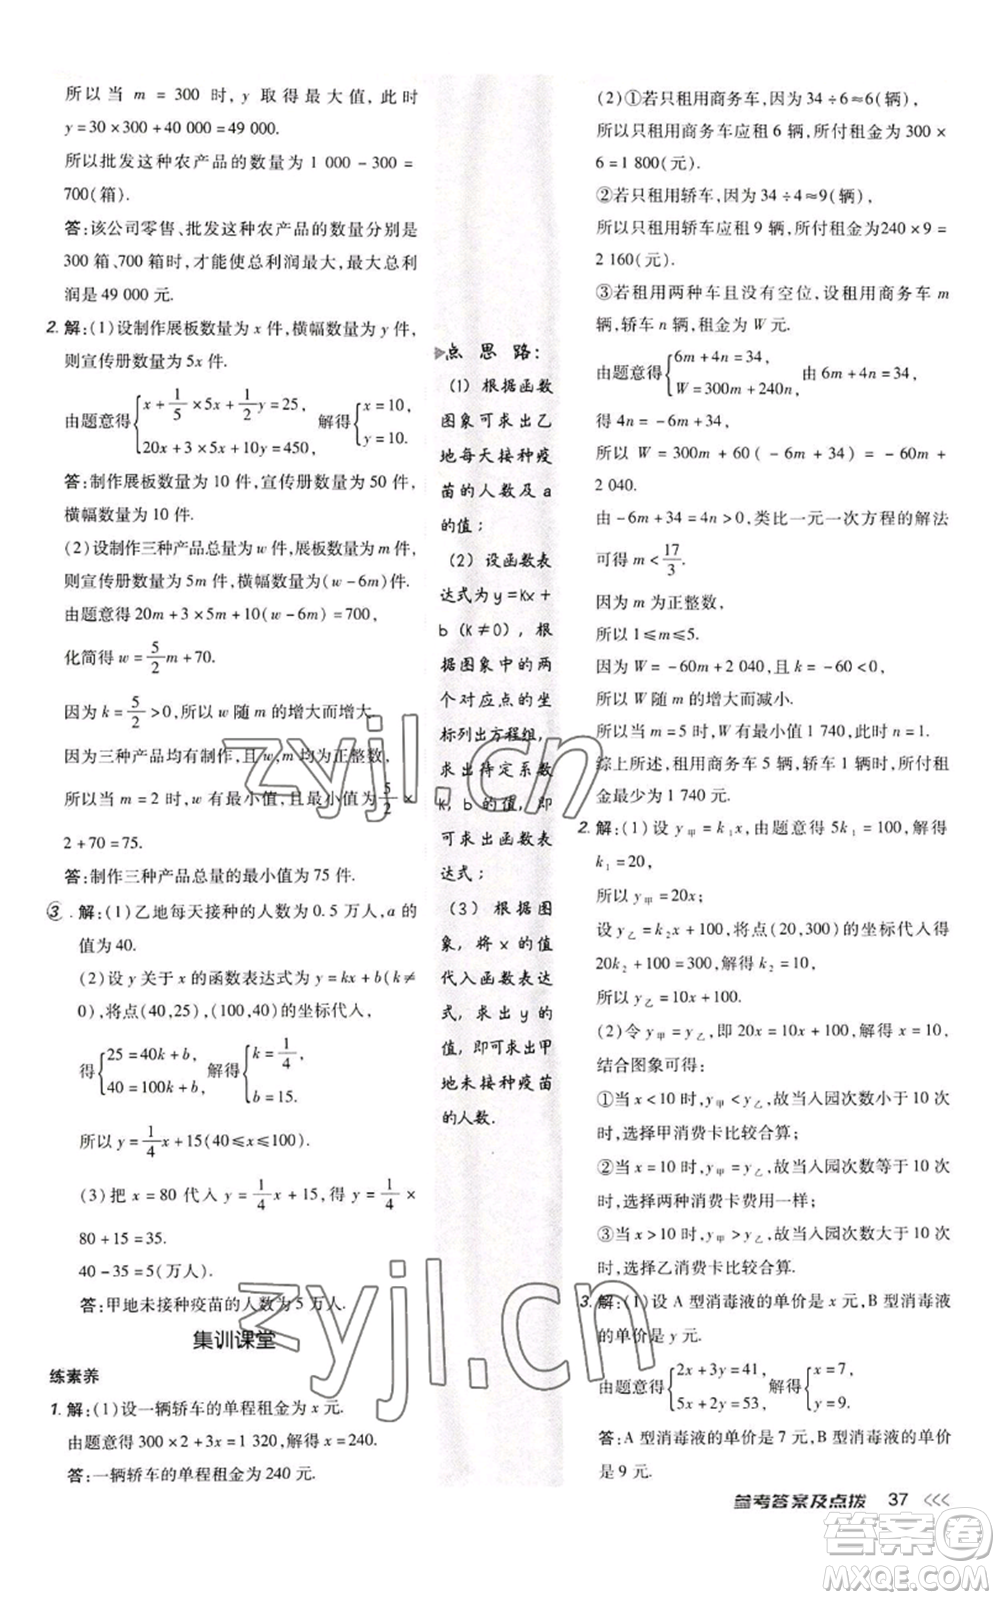 所以当 m = 300 时, y 取得最大值, 此时
y = 30 × 300 + 40 000 = 49 000.
所以批发这种农产品的数量为 1 000 - 300 =
700(箱).
答:该公司零售、批发这种农产品的数量分别是
300 箱、700 箱时,才能使总利润最大,最大总利
润是 49 000 元.
2. 解:(1)设制作展板数量为 x 件,横幅数量为 y 件,
则宣传册数量为 5x 件.
由题意得{x + 1/5 × 5x + 1/2 y = 25, 20x + 3 × 5x + 10y = 450, 解得{x = 10, y = 10.
答:制作展板数量为 10 件,宣传册数量为 50 件,
横幅数量为 10 件.
(2)设制作三种产品总量为 w 件,展板数量为 m 件,
则宣传册数量为 5m 件,横幅数量为(w - 6m)件.
由题意得 20m + 3 × 5m + 10(w - 6m) = 450,
化简得 w = 5/2 m + 70.
因为 k = 5/2 > 0,所以 w 随 m 的增大而增大.
因为三种产品均有制作,且 w,m 均为正整数,
所以当 m = 2 时,w 有最小值,且最小值为 5/2 ×
2 + 70 = 75.
答:制作三种产品总量的最小值为 75 件.
3. 解:(1)乙地每天接种的人数为 0.5 万人,a 的
值为 40.
(2)设 y 关于 x 的函数表达式为 y = kx + b(k ≠
0),将点(40,25),(100,40)的坐标代入,
得{25 = 40k + b, 40 = 100k + b, 解得{k = 1/4, b = 15.
所以 y = 1/4 x + 15(40 ≤ x ≤ 100).
(3)把 x = 80 代入 y = 1/4 x + 15,得 y = 1/4 ×
80 + 15 = 35.
40 - 35 = 5(万人).
答:甲地未接种疫苗的人数为 5 万人.
集训课堂
练素养
1. 解:(1)设一辆轿车的单程租金为 x 元.
由题意得 300 × 2 + 3x = 1 320,解得 x = 240.
答:一辆轿车的单程租金为 240 元.
点思路:
(1)根据函数
图象可求出乙
地每天接种疫
苗的人数及 a
的值;
(2)设函数表
达式为 y = kx +
b(k≠0),根
据图象中的两
个对应点的坐
标列出方程组,
求出待定系数
k,b 的值,即
可求出函数表
达式;
(3)根据图
象,将 x 的值
代入函数表达
式,求出 y 的
值,即可求出甲
地未接种疫苗
的人数.
(2)①若只租用商务车,因为 34 ÷ 6 ≈ 6(辆),
所以只租用商务车应租 6 辆,所付租金为 300 ×
6 = 1 800(元).
②若只租用轿车,因为 34 ÷ 4 ≈ 9(辆),
所以只租用轿车应租 9 辆,所付租金为 240 × 9 =
2 160(元).
③若租用两种车且没有空位,设租用商务车 m
辆,轿车 n 辆,租金为 W 元.
由题意得{6m + 4n = 34, W = 300m + 240n, 由 6m + 4n = 34,
得 4n = -6m + 34,
所以 W = 300m + 60( -6m + 34) = -60m +
2 040.
由 -6m + 34 = 4n > 0,类比一元一次方程的解法
可得 m < 17/3.
因为 m 为正整数,
所以 1 ≤ m ≤ 5.
因为 W = -60m + 2 040,且 k = -60 < 0,
所以 W 随 m 的增大而减小.
所以当 m = 5 时,W 有最小值 1 740,此时 n = 1.
综上所述,租用商务车 5 辆,轿车 1 辆时,所付租
金最少为 1 740 元.
2. 解:(1)设 y甲 = k₁x,由题意得 5k₁ = 100,解得
k₁ = 20,
所以 y甲 = 20x;
设 y乙 = k₂x + 100,将点(20,300)的坐标代入得
20k₂ + 100 = 300,解得 k₂ = 10,
所以 y乙 = 10x + 100.
(2)令 y甲 = y乙,即 20x = 10x + 100,解得 x = 10,
结合图象可得:
①当 x < 10 时,y甲 < y乙,故当入园次数小于 10
时,选择甲消费卡比较合算;
②当 x = 10 时,y甲 = y乙,故当入园次数等于 10
时,选择两种消费卡费用一样;
③当 x > 10 时,y甲 > y乙,故当入园次数大于 10
时,选择乙消费卡比较合算.
3. 解:(1)设 A 型消毒液的单价是 x 元,B 型消毒液
的单价是 y 元.
由题意得{2x + 3y = 41, 5x + 2y = 53, 解得{x = 7, y = 9.
答:A 型消毒液的单价是 7 元,B 型消毒液的单价
是 9 元.
参考答案及点拨 37
zyjl.cn
zyjl.cn
答案圈
MXQE.COM